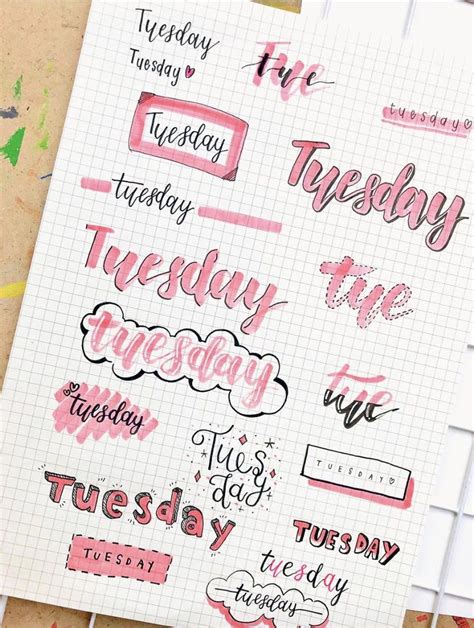 Tuesday
Tuesday
Tue
tuesday
Tuesday
Tuesday
tuesday
Tuesday
tue
tuesday
tue
tuesday
Tues
day
TUESDAY
Tuesday
TUESDAY
TUESDAY
tuesday
tuesday